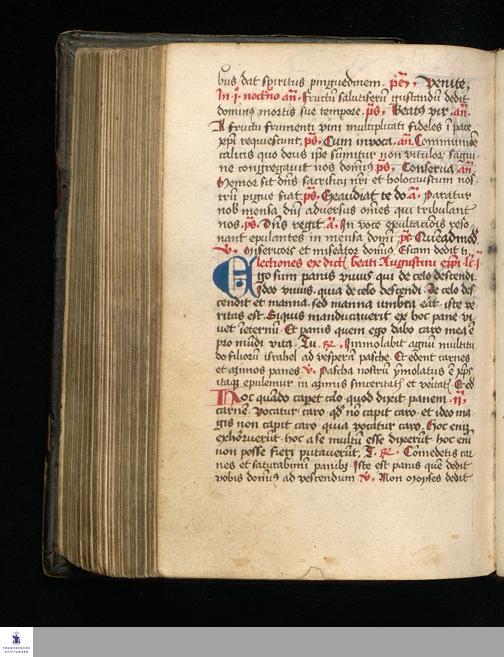 bus dat spiritus pinguedinem. ps. Venite.
In .i. noctno an. Fructu salutiferu gustandu dedit
dominus mortis sue tempore. ps. Beatus vir. an.
A fructu frumenti vini multiplicati fideles i pace
xpi requiescunt. ps. Cum invoca. an. Communione
calicis quo deus ipe sumitur non vitulor sagui-
ne congregavit nos dominus ps. Conserva an.
Memor sit dns sacrificii nri et holocaustum nos
trum pigue fiat ps. Exaudiat te do a. Paratur
nob mensa dni adversus omes qui tribulant
nos. ps. Dns regit. a. In voce exultacionis reso-
nant epulantes in mensa domi ps Queadmod.
lectiones ex dict beati Augustini epi. le. i
Ego sum panis vivus qui de celo descendi.
Ideo vivus. quia de celo descendi. De celo des-
cendit et manna. sed manna umbra erat. iste ve
ritas est. Siquis manducaverit ex hoc pane vi-
vet ieternu. Et panis quem ego dabo caro mea e
pro mudi vita. Tu. R. Immolabit agnu multitu
do filioru israhel ad vesperu pasche. Et edent carnes
et azimos panes V. Pascha nostru ymolatus e xps
itaq epulemur in azimis sinceritatis et veitat Et ed
Hoc quado caperet caro quod dixit panem .ii.
carne. Vocatur caro qd no capit caro. et ideo ma
gis non capit caro quia vocatur caro. Hoc eni
exhorruerut. hoc a se multu esse dixerut hoc eni
non posse fieri putaverut. T. R. Comedetis car
nes et saturabimi panib9. Iste est panis que dedit
vobis domin9 ad vescendum V. Non moyses dedit
FRANCKESCHE
STIFTUNGEN